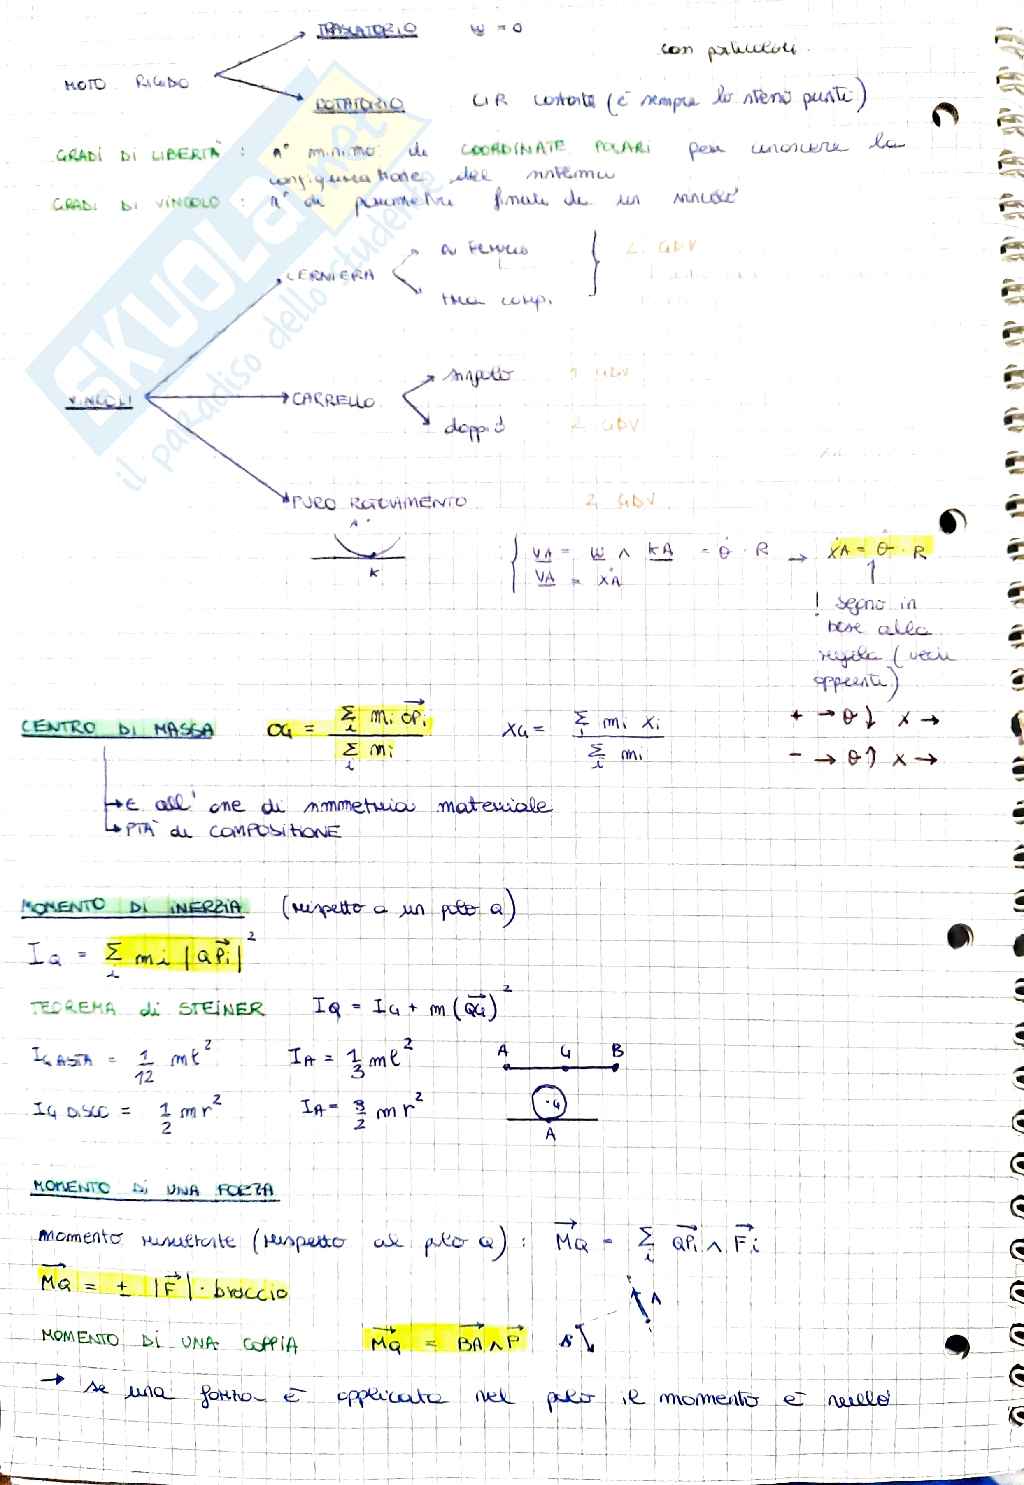 TRASLATORIO ω = 0
con particolari
MOTO RIGIDO
ROTATORIO CIR costante (è sempre lo stesso punto)
GRADI DI LIBERTA' : n° minimo di COORDINATE POLARI per conoscere la
configurazione del sistema
GRADI DI VINCOLO : n° di parametri di un
a terra
CERNIERA 2 GDV
tra corpi
SKUOLA.net
il paradiso dello studente
singolo 1 GDV
VINCOLI CARRELLO
doppio 2 GDV
PURO ROTOLAMENTO 2 GDV
A
K
VA = ω ∧ KA = θ̇ · R → ẋA = θ̇ · R
VA = ẋA
! segno in
base alla
regola (vedi
appunti)
CENTRO DI MASSA OG = Σi mi OPi / Σi mi XG = Σi mi xi / Σi mi
+ → θ ↓ x →
- → θ ↑ x →
→ ∈ all' asse di simmetria materiale
→ PTA' di COMPOSIZIONE
MOMENTO DI INERZIA (rispetto a un polo Q)
IQ = Σi mi |QPi|²
TEOREMA di STEINER IQ = IG + m (QG)²
IG ASTA = 1/12 ml² IA = 1/3 ml² A G B
IG DISCO = 1/2 mr² IA = 3/2 mr² G
A
MOMENTO DI UNA FORZA
momento risultante (rispetto al polo Q) : MQ = Σi QPi ∧ Fi
MQ = ± |F| · braccio
A
MOMENTO DI UNA COPPIA MQ = BA ∧ F B
→ se una forza è applicata nel polo il momento è nullo